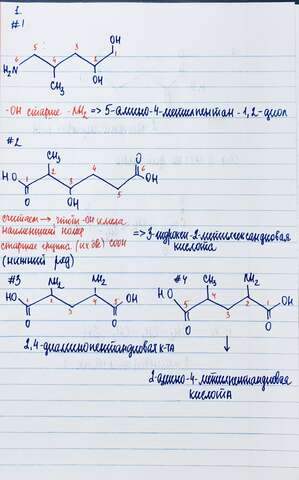 1.
#1
OH
6 5 4 3 2 1
H₂N
CH₃ OH
-OH старше -NH₂ => 5-амино-4-метилпентан-1,2-диол
#2
CH₃ O
HO 1 2 3 4 5 6 OH
O OH
считаем → чтобы -OH имела
наименьший номер => 3-гидрокси-2-метилгександиовая
старшая группа (их две) COOH кислота
(нижний ряд)
#3 NH₂ NH₂ #4 CH₃ NH₂
HO 1 2 3 4 5 OH HO 5 4 3 2 1 OH
O O O O
2,4-диаминопентандиовая к-та
2-амино-4-метилпентандиовая
кислота